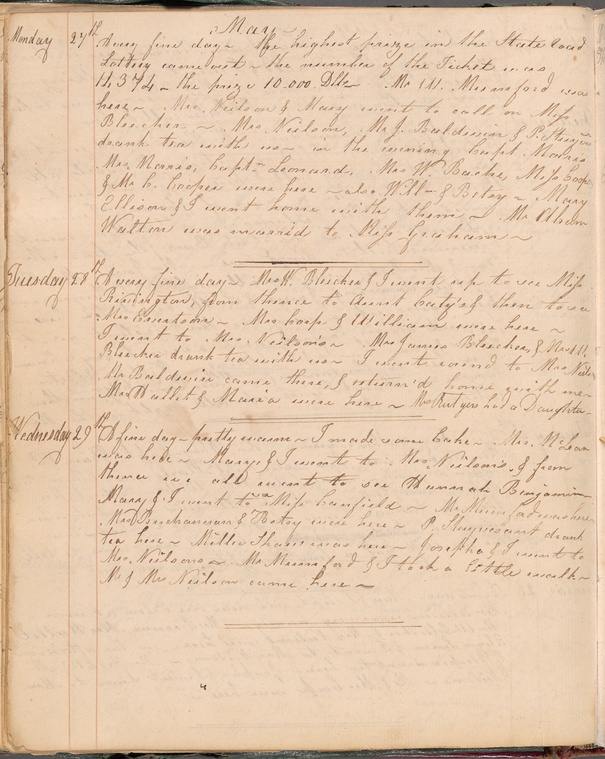 May
Monday 27th A very fine day - the highest prize in the State road
Lottery came out - the number of the Ticket was
14374 - the prize 10.000 Dlls - Mr M. Mumford was
here - Mrs Neilson & Mary went to call on Miss
Bleecker - Mrs Neilson, Mr J. Baldwin &
drank tea with us - in the evening Capt Morris
Mrs Morris, Capt Leonard, Mrs W. Bache, Miss Coop
& Mr C. Cooper were here - also Will & Betsy - Mary
Ellison & I went home with them - Mr
Walton was married to Miss Graham -
Tuesday 28th A very fine day - Mrs N. Bleecker & I went up to see Miss
Rivington, from thence to Aunt Caty's & then to see
Mrs - Mrs Coop & William were here -
I went to Mrs Neilsons - Mrs James Bleecker, & Mrs M.
Bleecker drank tea with us - I went round to Mrs Neils
Mr Baldwin came there, & return'd home with me -
Mrs Hallet & Maria were here - Mrs Rutgers has a Daughter
Wednesday 29th A fine day - pretty warm - I made some Cake - Mrs McLean
was here - Mary & I went to Mrs Neilson's, & from
thence we all went to see Hannah Benjamin
Mary & I went to see Miss Canfield - Mr Mumford was here
Mrs Buchannan & Betsy were here - P. Stuyvesant drank
tea here - Miller Shaw was here - Josepha & I went to
Mrs Neilsons - Mr Mumford & I took a little walk -
Mr & Mrs Neilson came here -